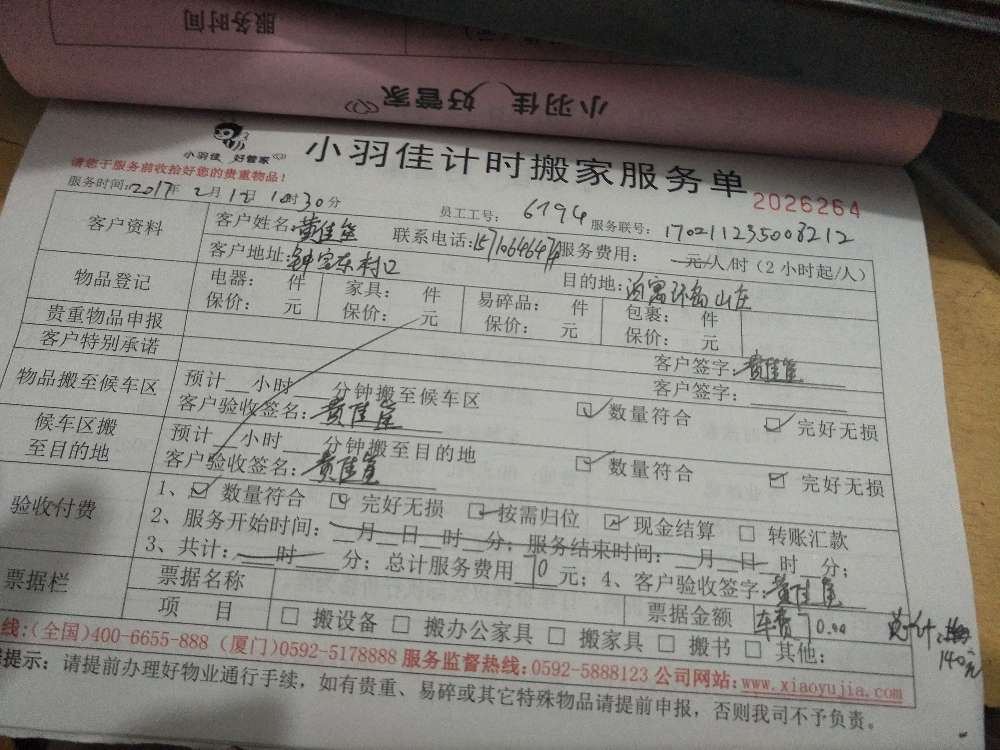 服务时间
小羽佳 好管家
小羽佳 好管家
小羽佳计时搬家服务单
2026264
请您于服务前收拾好您的贵重物品！
服务时间：2017年2月18日 10时30分 员工工号：6194 服务联号：170211235008212
客户资料 客户姓名： 联系电话： 服务费用： 元/人/时（2小时起/人）
客户地址：钟宝东村口 目的地：
物品登记 电器： 件 家具： 件 易碎品： 件 包裹： 件
保价： 元 保价： 元 保价： 元 保价： 元
贵重物品申报 客户签字：
客户特别承诺 客户签字：
物品搬至候车区 预计 小时 分钟搬至候车区
客户验收签名： ☑ 数量符合 ☑ 完好无损
候车区搬至目的地 预计 小时 分钟搬至目的地
客户验收签名： ☑ 数量符合 ☑ 完好无损
验收付费 1、☑ 数量符合 ☑ 完好无损 ☑ 按需归位 ☑ 现金结算 □ 转账汇款
2、服务开始时间： 月 日 时 分；服务结束时间： 月 日 时 分；
3、共计： 时 分；总计服务费用 70 元；4、客户验收签字：
票据栏 票据名称 票据金额 车费70.00
总计: 140元
项 目 □ 搬设备 □ 搬办公家具 □ 搬家具 □ 搬书 □ 其他：
线:(全国)400-6655-888 (厦门)0592-5178888 服务监督热线:0592-5888123 公司网站:www.xiaoyujia.com
提示：请提前办理好物业通行手续，如有贵重、易碎或其它特殊物品请提前申报，否则我司不予负责。